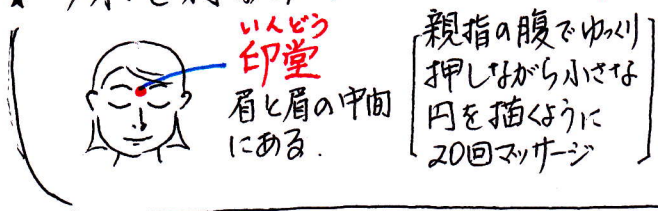 いんどう
印堂
眉と眉の中間
にある.
親指の腹でゆっくり
押しながら小さな
円を描くように
20回マッサージ